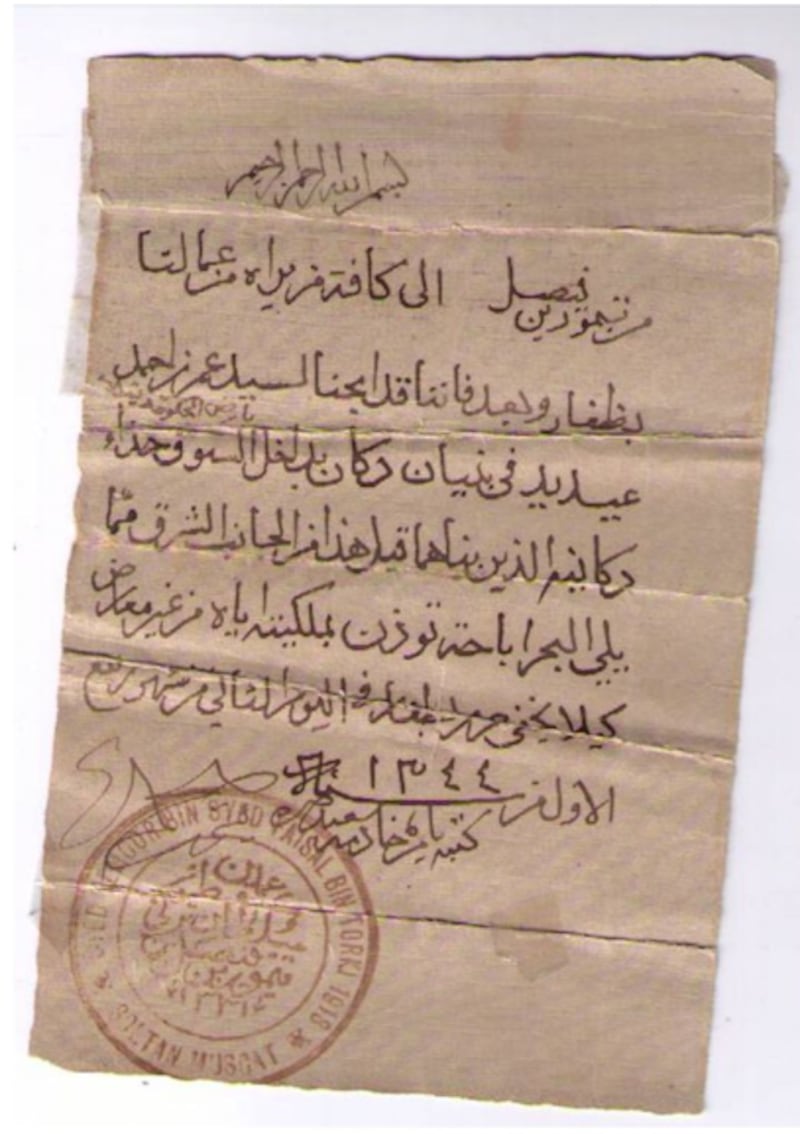 بسم الله الرحمن الرحيم
من تيمور بن فيصل الى كافة من يراه من عمالنا
بظفار وبعد فاننا قد ابحنا لسيد عمر بن احمد
عيديد في بنيان دكان بداخل السوق حذاء
دكانينه الذين بناهما قبل هذا من الجانب الشرقي مما
يلي البحر اباحة توذن بملكيته اياه من غير معارض
كيلا يخفى حرر بظفار في اليوم الثاني من شهر ربيع
الاول من سنة ١٣٤٤
كتبه بامره خادمه
SEYD TEIMOOR BIN SYED FAISAL BIN TORKI 1913
SULTAN MUSCAT
سلطان
فيصل
تيمور بن